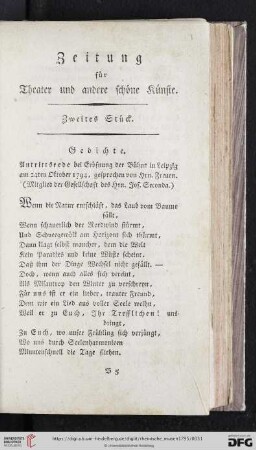 Zeitung
für
Theater und andere schöne Künste.
Zweites Stück.
Gedichte.
Antrittsrede bei Eröfnung der Bühne in Leipzig
am 12ten Oktober 1794, gesprochen von Hrn.
(Mitglied der Gesellschaft des Hrn. Jos. Seconda.)
Wenn die Natur entschläft, das Laub vom Baume
fällt,
Wenn schauerlich der Nordwind stürmt,
Und Schneegewölk am Horizont sich thürmt,
Dann klagt selbst mancher, dem die Welt
Kein Paradies und keine Wüste scheint,
Daß ihm der Dinge Wechsel nicht gefällt. —
Doch, wenn auch alles sich vereint,
Als Misantrop den Winter zu verschreyn,
Für uns ist er ein lieber, trauter Freund,
Dem wir ein Lied aus voller Seele weihn,
Weil er zu Euch, Ihr Treflichen! uns
bringt,
Zu Euch, wo unser Frühling sich verjüngt,
Wo uns durch Seelenharmonien
Minutenschnell die Tage fliehen.
UNIVERSITÄTS-
BIBLIOTHEK
HEIDELBERG
DFG